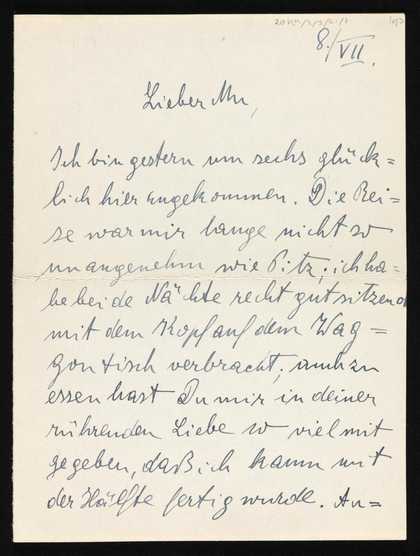 8./VII.
Lieber Mu,
Ich bin gestern um sechs glück=
lich hier angekommen. Die Rei=
se war mir lange nicht so
unangenehm wie Pitz; ich ha=
be beide Nächte recht gut sitzend
mit dem Kopf auf dem Wag=
gontisch verbracht; auch zu
essen hast Du mir in deiner
rührenden Liebe so viel mit
gegeben, daß ich kaum mit
der Hälfte fertig wurde. An=